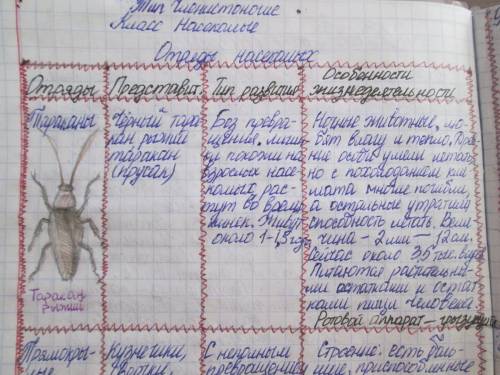 Тип Членистоногие
Класс Насекомые
Отряды насекомых
Отряды
Представит.
Тип развития
Особенности
жизнедеятельности
Тараканы
Таракан
рыжий
Чёрный тара
кан, рыжий
таракан
(прусак)
Без превра-
щения. личин
ки похожи на
взрослых насе-
комых, рас-
тут во время
линек. Живут
около 1-1,5 года
Ночные животные, лю-
бят влагу и тепло. Древ
ние особи умели летать,
но с похолоданием кли
мата многие погибли,
а остальные утратили
способность летать. Вели-
чина - 2 мм - 12 см.
Сейчас около 3,5 тыс. видов
Питаются растительны-
ми остатками и остат
ками пищи человека
Ротовой аппарат - грызущий
Прямокры-
лые
Кузнечики,
С неполным
превращением
Строение: есть
приспособленные